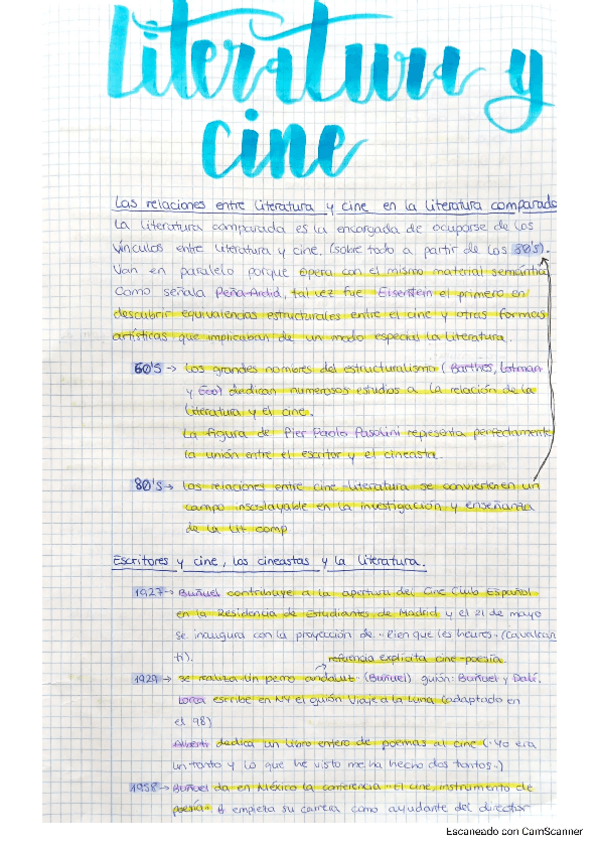 Literatura y
cine
Las relaciones entre literatura y cine en la literatura comparada
La literatura comparada es la encargada de ocuparse de los
vínculos entre literatura y cine. (sobre todo a partir de los 80's).
Van en paralelo porque opera con el mismo material semántico
Como señala Peña-Ardid, tal vez fue Eisenstein el primero en
descubrir equivalencias estructurales entre el cine y otras formas
artísticas que implicaban de un modo especial la literatura.
60's → Los grandes nombres del estructuralismo (Barthes, Lotman
y Eco) dedican numerosos estudios a la relación de la
literatura y el cine.
La figura de Pier Paolo Pasolini representa perfectamente
la unión entre el escritor y el cineasta.
80's → Las relaciones entre cine-literatura se convierten en un
campo insoslayable en la investigación y enseñanza
de la lit comp
Escritores y cine, los cineastas y la literatura.
1927 → Buñuel contribuye a la apertura del Cine Club Español
en la Residencia de Estudiantes de Madrid y el 21 de mayo
se inaugura con la proyección de "Rien que les heures" (Cavalcan
ti).
refuencia explícita cine-poesía
1929 → se realiza Un perro andaluz (Buñuel) guión: Buñuel y Dalí.
Lorca escribe en NY el guión Viaje a la luna (adaptado en
el 98)
Alberti dedica un libro entero de poemas al cine ("Yo era
un tonto y lo que he visto me ha hecho dos tontos")
1958 → Buñuel da en México la conferencia "El cine, instrumento de
poesía" B empieza su carrera como ayudante del director
Escaneado con CamScanner